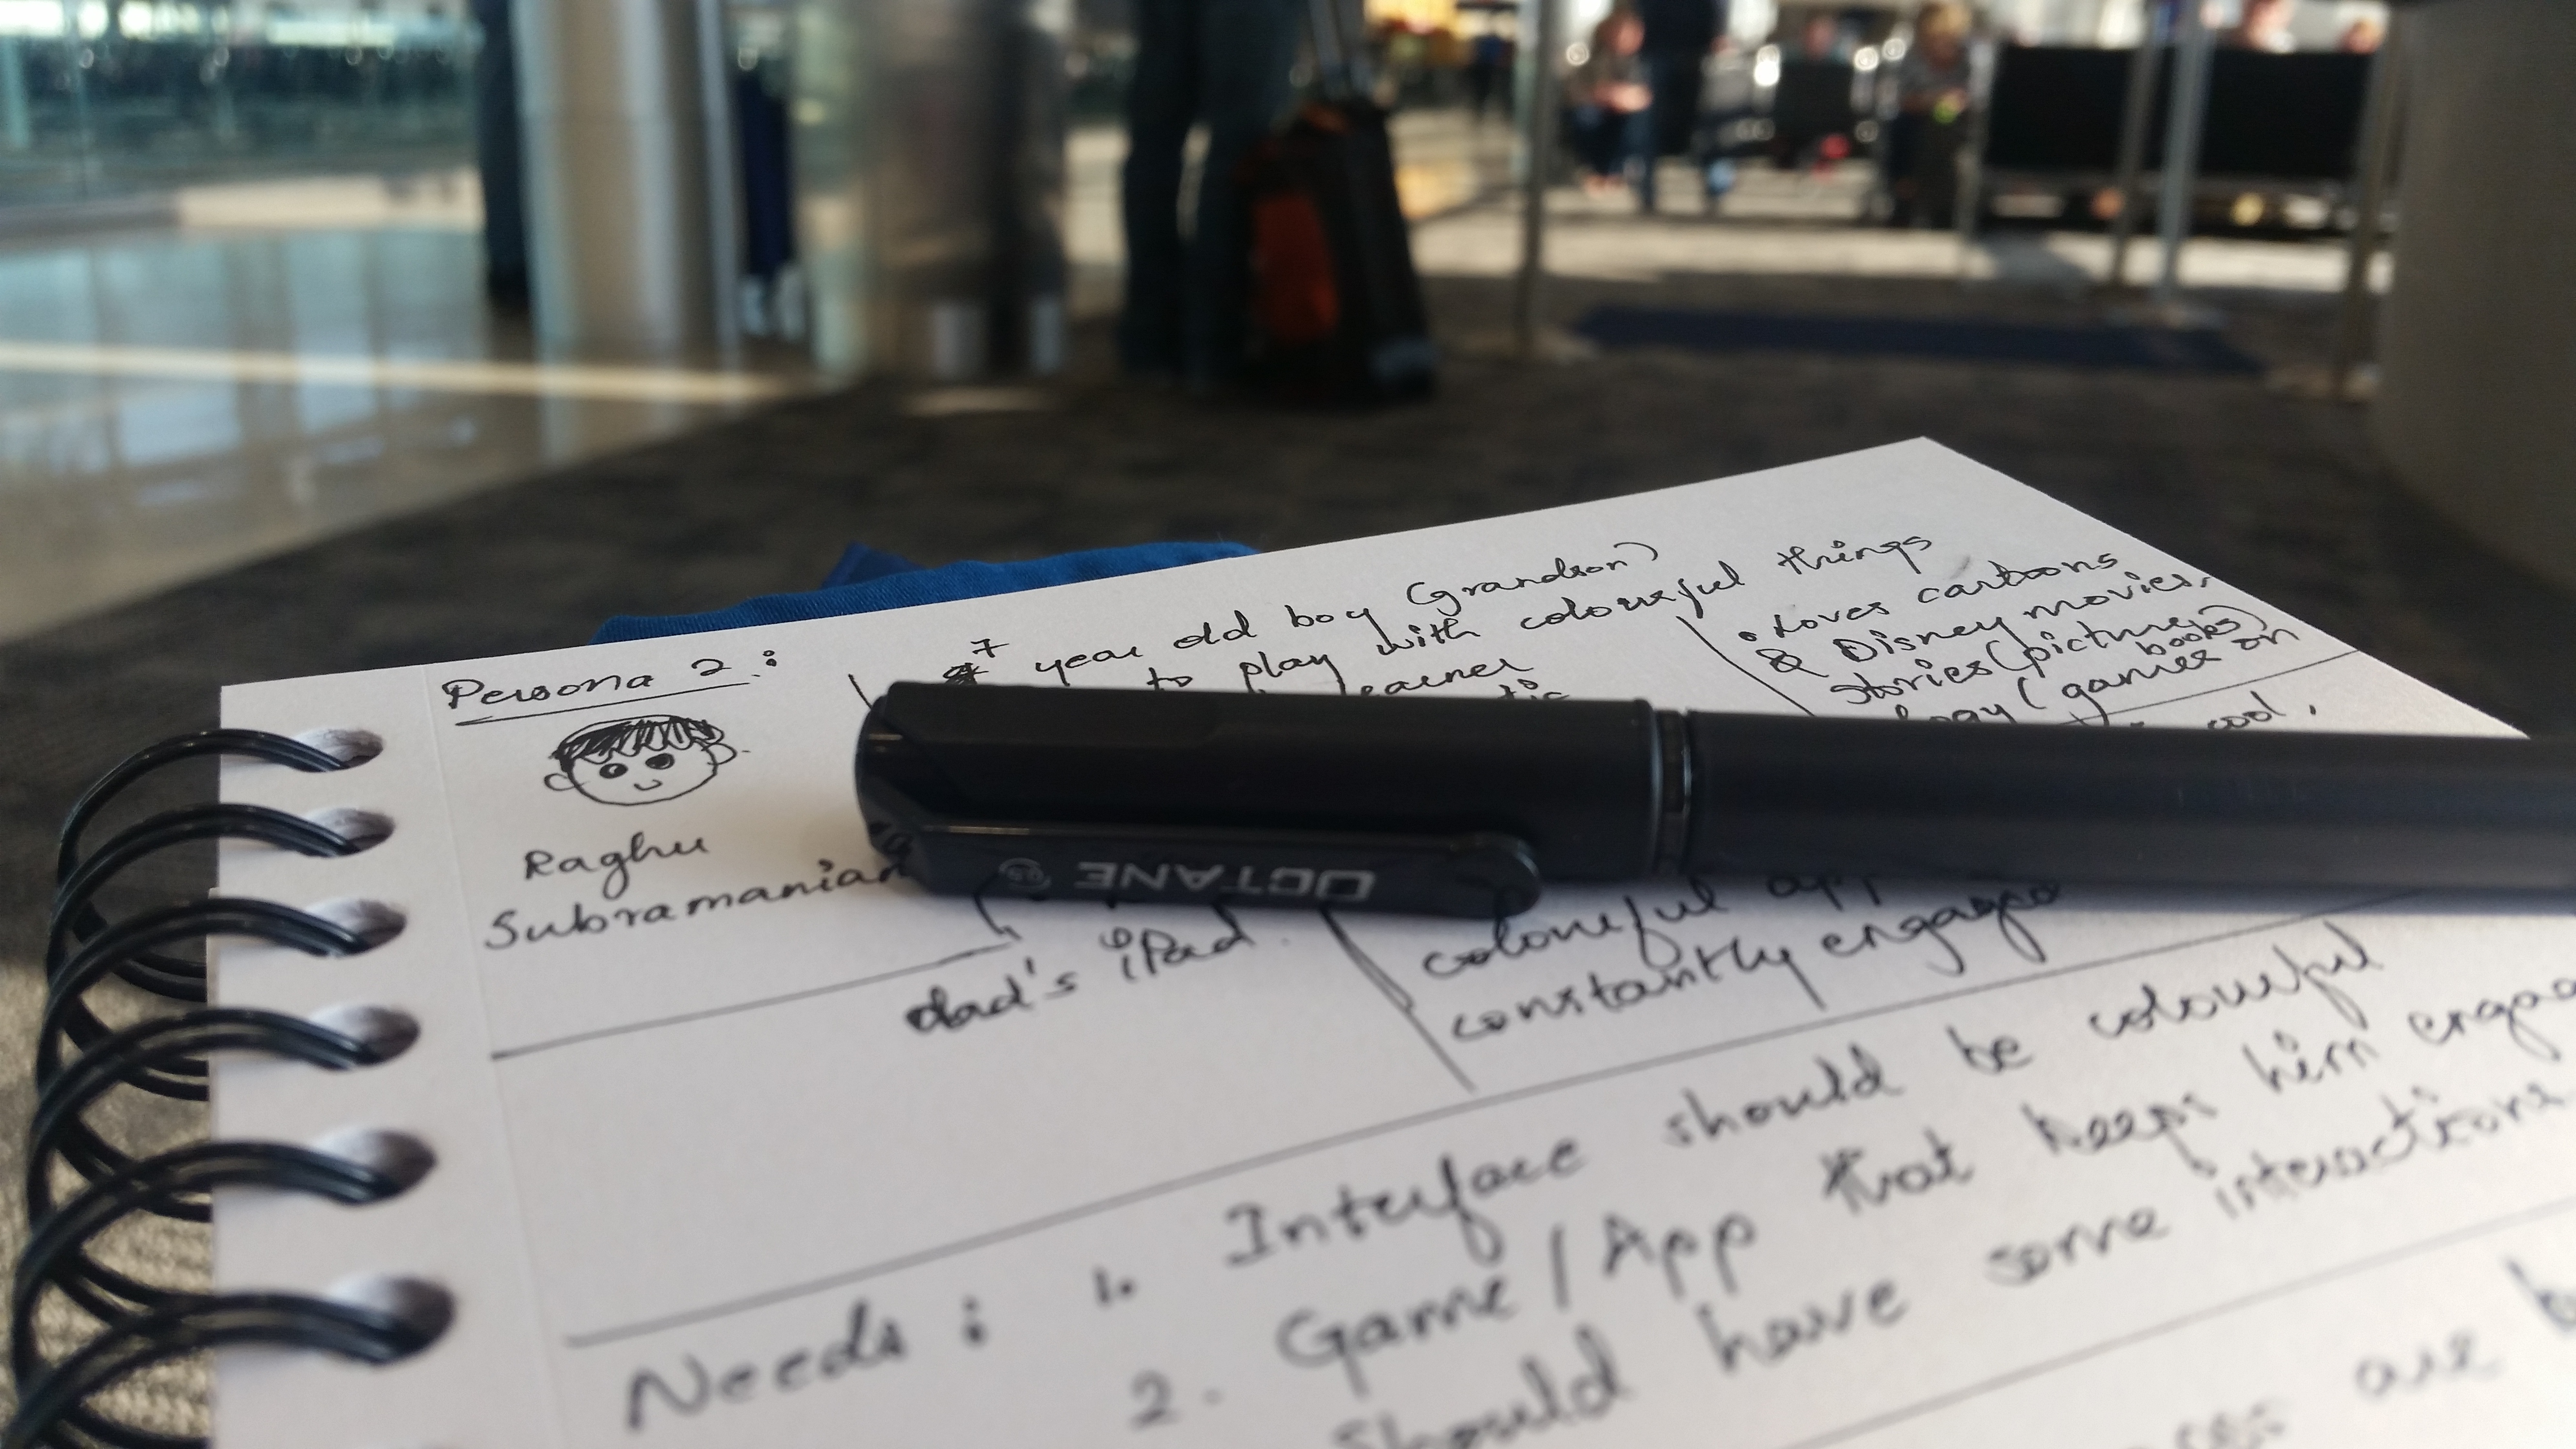 Persona 2 :
Raghu
Subramanian
7 year old boy (grandson)
to play with colourful things
learner
• Loves cartoons
& Disney movies,
stories (picture books)
(games on
dad's iPad
cool,
colourful
constantly engaged
Needs : 1. Interface should be colourful
2. Game / App that keeps him
Should have some interactions
are
OCTANE